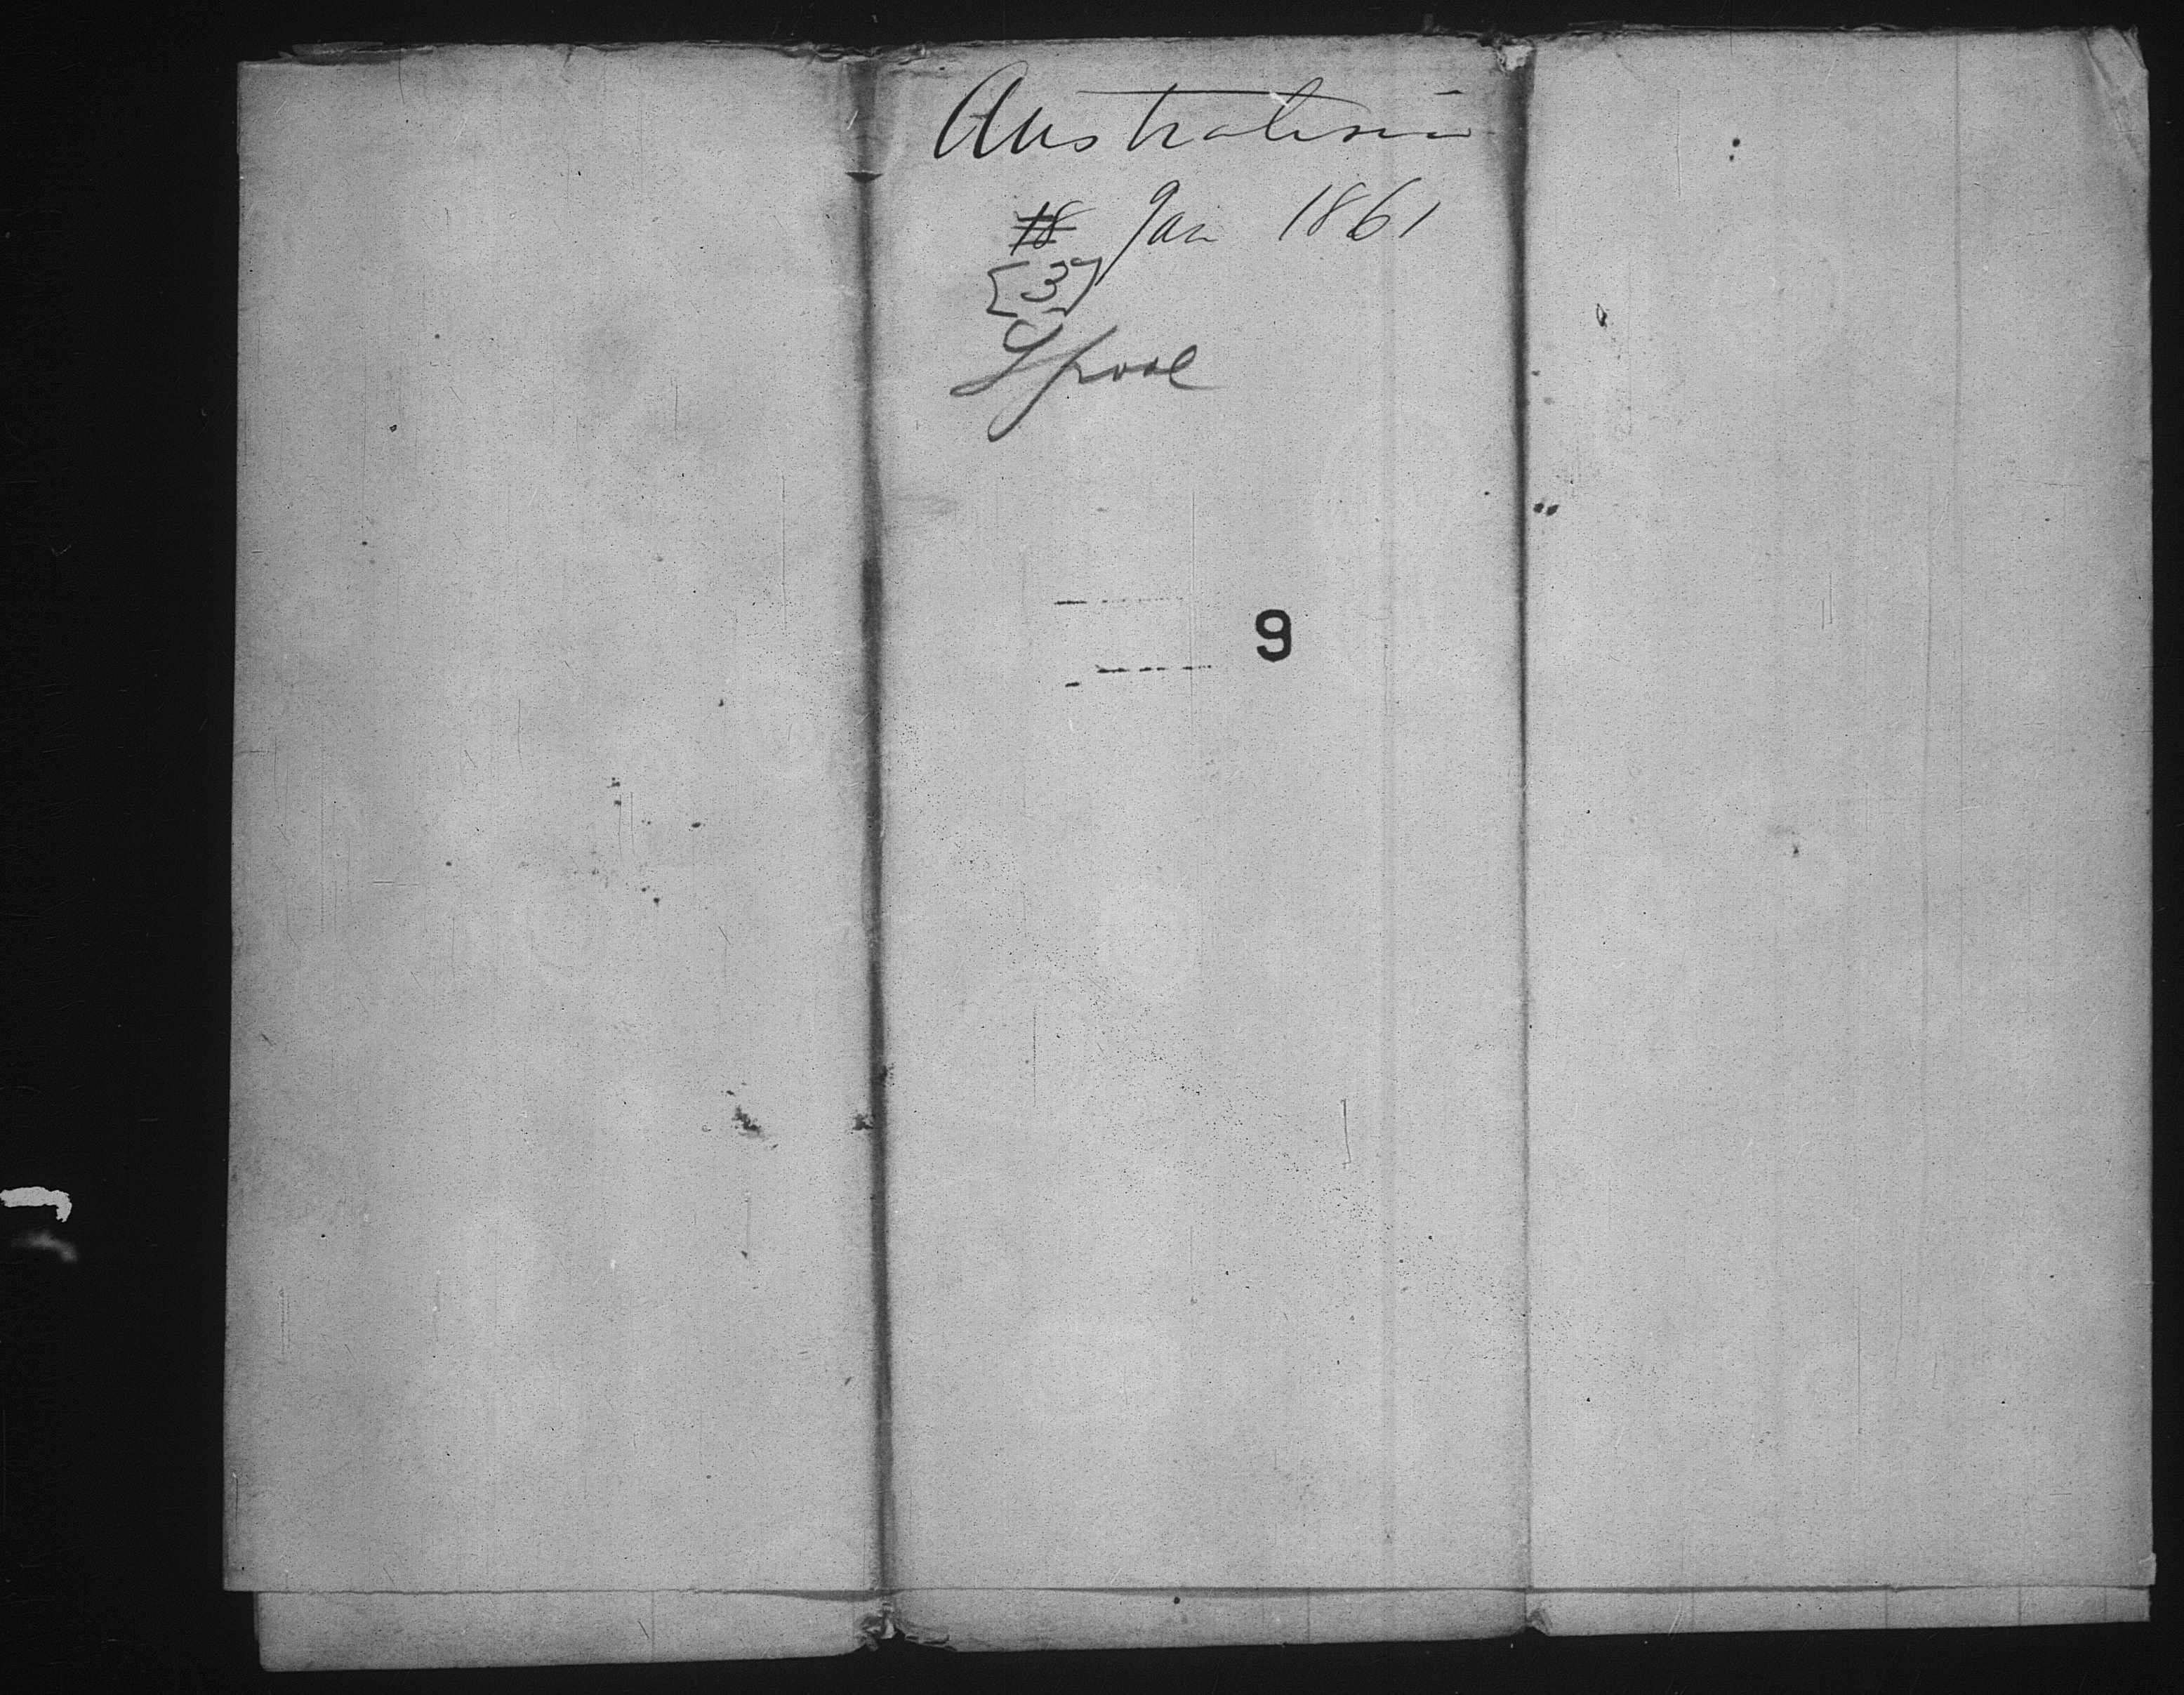 Australasian
18 Jan 1861
[3]
Lpool
9